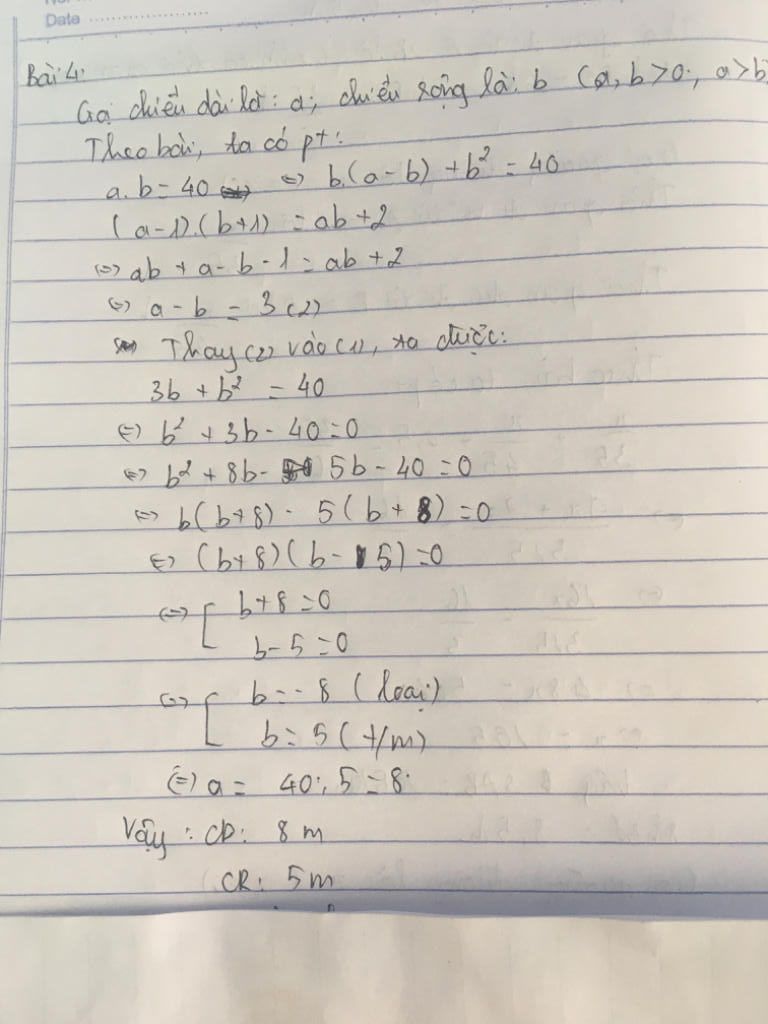 Date
Bài 4:
Gọi chiều dài là: a; chiều rộng là: b (a, b > 0; a > b
Theo bài, ta có pt:
a.b = 40 <=> b.(a-b) + b² = 40
(a-1).(b+1) = ab+2
<=> ab + a - b - 1 = ab + 2
<=> a - b = 3 (2)
Thay (2) vào (1), ta được:
3b + b² = 40
<=> b² + 3b - 40 = 0
<=> b² + 8b - 5b - 40 = 0
<=> b(b+8) - 5(b+8) = 0
<=> (b+8)(b-5) = 0
<=> [ b+8 = 0
b-5 = 0
<=> [ b = -8 (loại)
b = 5 (t/m)
<=> a = 40:5 = 8.
Vậy: CD: 8 m
CR: 5 m